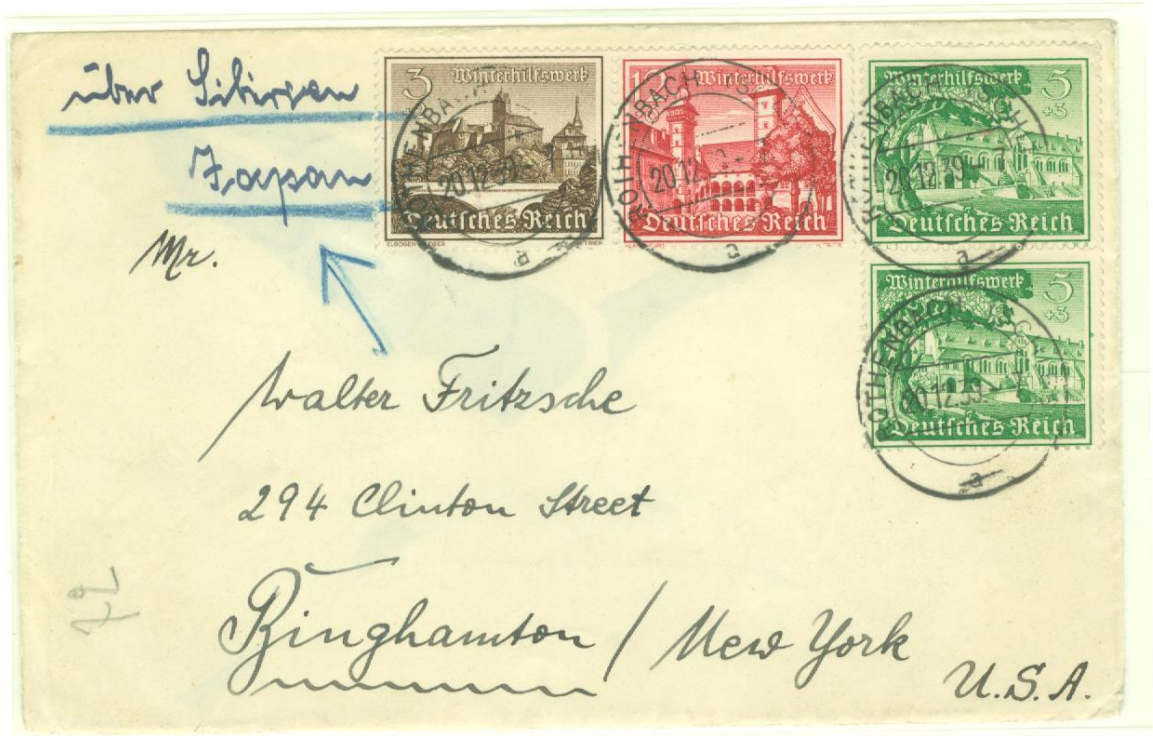 über Sibirien
Japan
3 Winterhilfswerk
Deutsches Reich
ELBOGEN EGER
Winterhilfswerk
Deutsches Reich
Winterhilfswerk 5
+3
Deutsches Reich
Winterhilfswerk 5
+3
Deutsches Reich
20.12.39
a
20.12.
a
20.12.39
a
ROTHENBACH
20.12.39
a
Mr.
Walter Fritzsche
294 Clinton Street
Binghamton / New York
U.S.A.
72